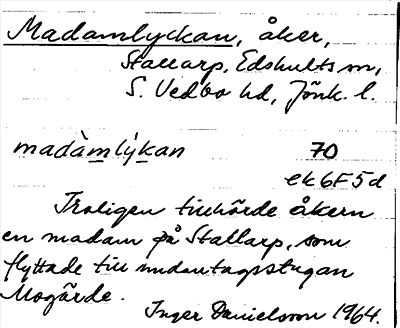 Madamlyckan, åker,
Stallarp, Edshults sn,
S. Vedbo hd, Jönk. l.
madàmlýkan 70
ek 6F5d
Troligen tillhörde åkern
en madam på Stallarp, som
flyttade till undantagsstugan
Mogärde.
Inger Danielsson 1964.